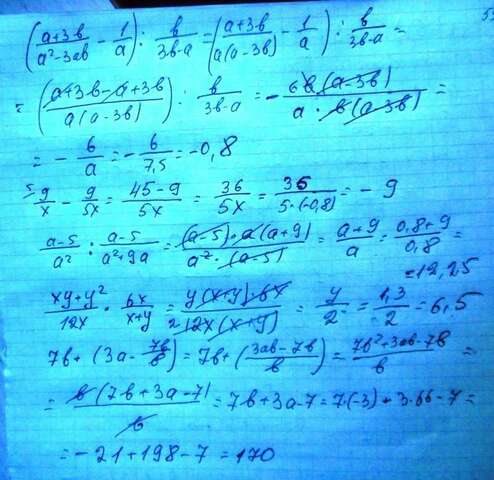 (a+3b/a²-3ab - 1/a) : b/3b-a = (a+3b/a(a-3b) - 1/a) : b/3b-a =
= (a+3b-a+3b/a(a-3b)) : b/3b-a = - 6b(a-3b)/a·b(a-3b) =
= - 6/a = - 6/7,5 = -0,8
5 9/x - 9/5x = 45-9/5x = 36/5x = 36/5·(-0,8) = - 9
a-5/a² : a-5/a²+9a = (a-5)·a(a+9)/a²·(a-5) = a+9/a = 0,8+9/0,8 =
=12,25
xy+y²/12x · 6x/x+y = y(x+y)·6x/2 12x(x+y) = y/2 = 1,3/2 = 6,5
7b+(3a-7b/b) = 7b+(3ab-7b/b) = 7b²+3ab-7b/b =
= b(7b+3a-7)/b = 7b+3a-7=7(-3)+3·66-7=
= -21+198-7=170